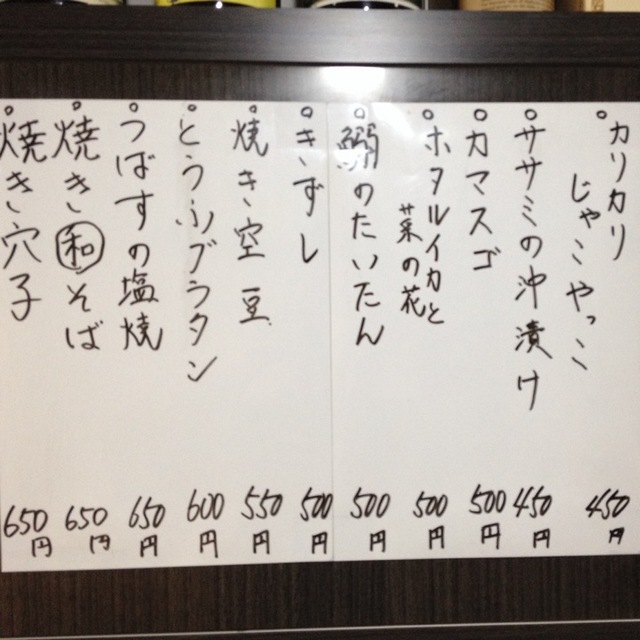 カリカリ
じゃこやっこ
450円
ササミの沖漬け
450円
カマスゴ
500円
ホタルイカと
菜の花
500円
鰯のたいたん
500円
きずし
500円
焼き空豆
550円
とうふグラタン
600円
つばすの塩焼
650円
焼き和そば
650円
焼き穴子
650円